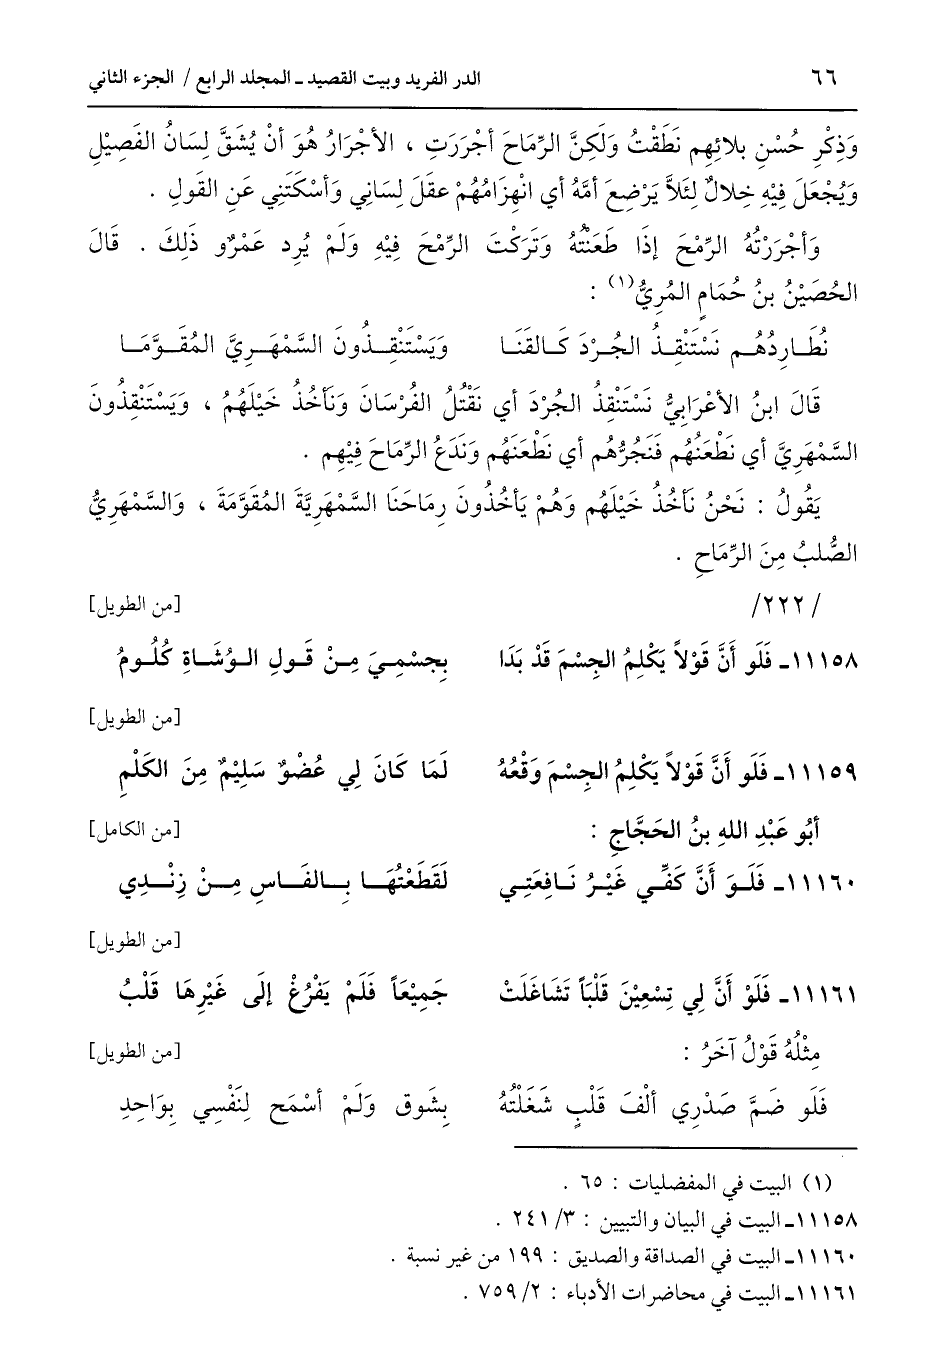 ٦٦ الدر الفريد وبيت القصيد ـ المجلد الرابع / الجزء الثاني
وَذِكْرِ حُسْنِ بلائِهِم نَطَقْتُ وَلَكِنَّ الرِّمَاحَ أجْرَرَتِ ، الأجْرَارُ هُوَ أنْ يُشَقَّ لِسَانُ الفَصِيْلِ
وَيُجْعَلَ فِيْهِ خِلالٌ لِئَلاَّ يَرْضِعَ أمَّهُ أي انْهِزَامُهُمْ عقَلَ لِسَاني وَأسْكَتَنِي عَنِ القَولِ .
وَأجْرَرْتُهُ الرِّمْحَ إذَا طَعَنْتُهُ وَتَرَكْتَ الرِّمْحَ فِيْهِ وَلَمْ يُرِد عَمْرٌو ذَلِكَ . قَالَ
الحُصَيْنُ بنُ حُمَامٍ المُرِيُّ(١) :
نُطَـارِدُهُـم نَسْتَنْقِـذُ الجُـرْدَ كَـالقَنَـا وَيَسْتَنْقِــذُونَ السَّمْهَـرِيَّ المُقَـوَّمَـا
قَالَ ابنُ الأعْرَابِيُّ نَسْتَنْقِذُ الجُرْدَ أي نَقْتُلُ الفُرْسَانَ وَنَأخُذُ خَيْلَهُمُ ، وَيَسْتَنْقِذُونَ
السَّمْهَرِيَّ أي نَطْعَنُهُم فَنَجُرُّهُم أي نَطْعَنَهُم وَنَدَعُ الرِّمَاحَ فِيْهِم .
يَقُولُ : نَحْنُ نَأخُذُ خَيْلَهُم وَهُمْ يَأخُذُونَ رِمَاحَنَا السَّمْهَرِيَّةَ المُقَوَّمَةَ ، وَالسَّمْهَرِيُّ
الصُّلبُ مِنَ الرِّمَاحِ .
/٢٢٢/ [من الطويل]
١١١٥٨ـ فَلَو أَنَّ قَوْلاً يَكْلِمُ الجِسْمَ قَدْ بَدَا بِجسْمِـيَ مِـنْ قَـولِ الـوُشَـاةِ كُلُـومُ
[من الطويل]
١١١٥٩ـ فَلَو أَنَّ قَوْلاً يَكْلِمُ الجِسْمَ وَقْعُهُ لَمَا كَانَ لِي عُضْوٌ سَلِيْمٌ مِنَ الكَلْمِ
أبُو عَبْدِ اللهِ بنُ الحَجَّاجِ : [من الكامل]
١١١٦٠ـ فَلَـوَ أَنَّ كَفِّـي غَيْـرُ نَـافِعَتِـي لَقَطَعْتُهَـا بِـالفَـاسِ مِــنْ زِنْـدِي
[من الطويل]
١١١٦١ـ فَلَوْ أَنَّ لِي تِسْعِيْنَ قَلْبَاً تَشَاغَلَتْ جَمِيْعَاً فَلَمْ يَفْرُغْ إلَى غَيْرِهَا قَلْبُ
مِثْلُهُ قَوْلُ آخَرُ : [من الطويل]
فَلَو ضَمَّ صَدْرِي ألْفَ قَلْبٍ شَغَلْتُهُ بِشَوق وَلَمْ أسْمَح لِنَفْسِي بِوَاحِدِ
(١) البيت في المفضليات : ٦٥ .
١١١٥٨ـ البيت في البيان والتبيين : ٣/ ٢٤١ .
١١١٦٠ـ البيت في الصداقة والصديق : ١٩٩ من غير نسبة .
١١١٦١ـ البيت في محاضرات الأدباء : ٢/ ٧٥٩ .